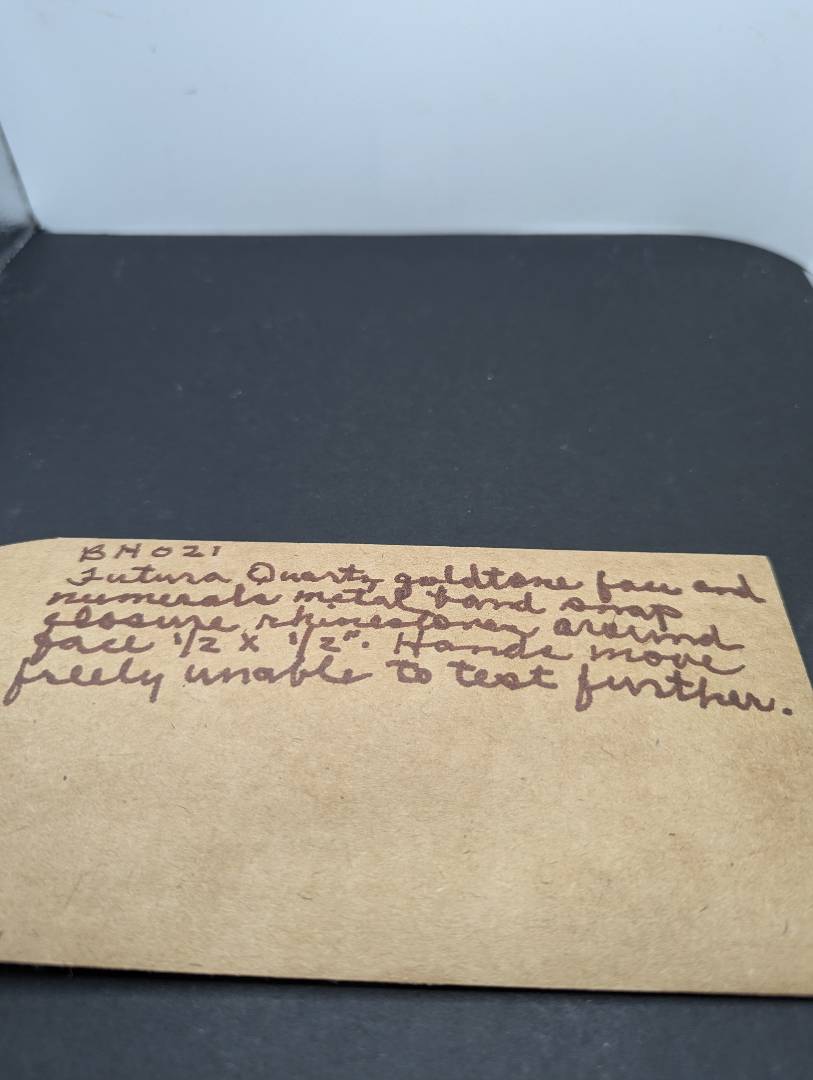 BH021
Futura Quartz goldtone face and
numerals metal band snap
closure rhinestones around
face 1/2 x 1/2". Hands move
freely unable to test further.